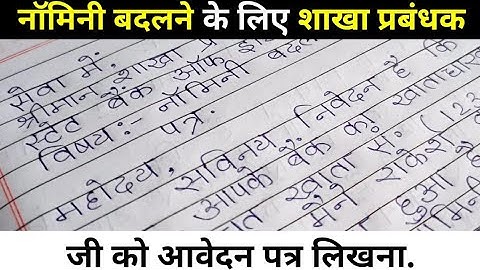 नॉमिनी बदलने के लिए शाखा प्रबंधक
सेवा में,
श्रीमान शाखा प्र
स्टेट बैंक ऑफ इं
विषय:- नॉमिनी बदल
पत्र.
महोदय, सविनय निवेदन है कि
आपके बैंक का खाताधा
खाता सं. (123
मैंने राकेश
हुआ है
जी को आवेदन पत्र लिखना.